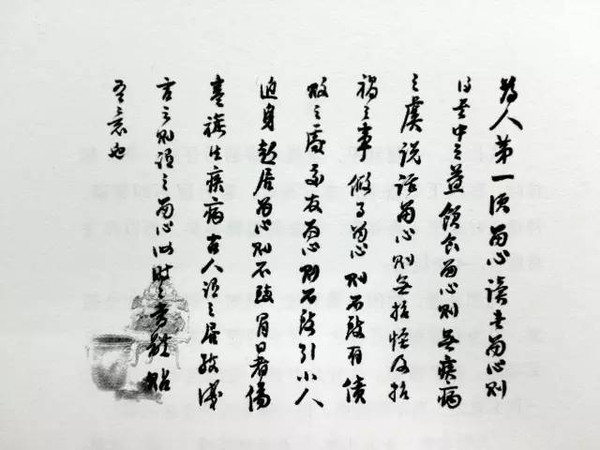 為人第一須留心讀書留心則
得書中之益飲食留心則無疾病
之虞說話留心則無招怪及招
禍之事做事留心則不致有僨
敗之辱交友留心則不致引小人
近身起居留心則不致冒日
生疾病古人謂之居敬淺
言之則謂之留心此
至意也